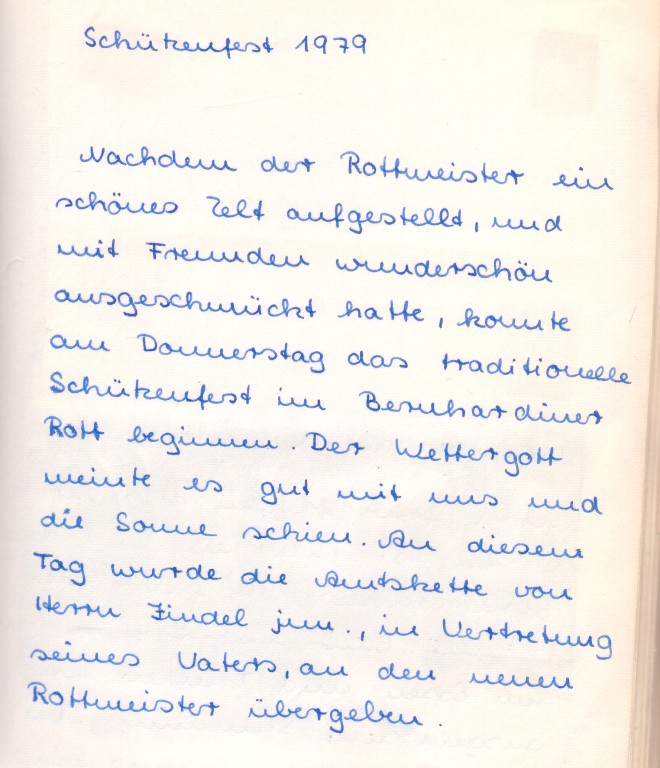 Schützenfest 1979
Nachdem der Rottmeister ein
schönes Zelt aufgestellt, und
mit Freunden wunderschön
ausgeschmückt hatte, konnte
am Donnerstag das traditionelle
Schützenfest im Bernhardiner
Rott beginnen. Der Wettergott
meinte es gut mit uns und
die Sonne schien. An diesem
Tag wurde die Amtskette von
Herrn Zindel jun., in Vertretung
seines Vaters, an den neuen
Rottmeister übergeben.